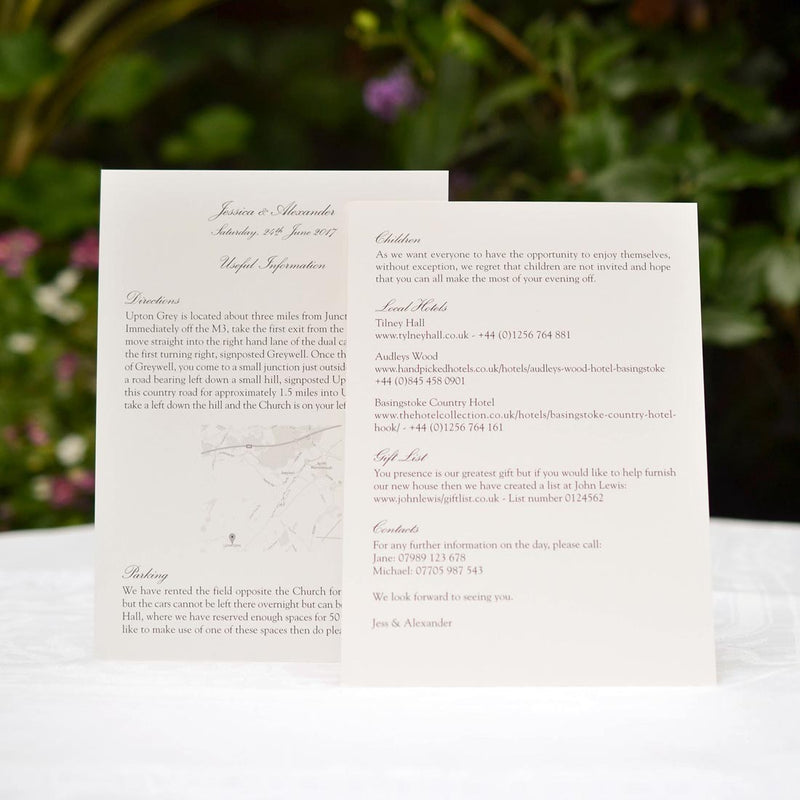 Jessica & Alexander
Saturday. 24th June 2017
Useful Information
Directions
Upton Grey is located about three miles from Junct
Immediately off the M3, take the first exit from the
move straight into the right hand lane of the dual ca
the first turning right, signposted Greywell. Once th
of Greywell, you come to a small junction just outside
a road bearing left down a small hill, signposted Up
this country road for approximately 1.5 miles into U
take a left down the hill and the Church is on your lef
Parking
We have rented the field opposite the Church for
but the cars cannot be left there overnight but can be
Hall, where we have reserved enough spaces for 50
like to make use of one of these spaces then do plea
Children
As we want everyone to have the opportunity to enjoy themselves,
without exception, we regret that children are not invited and hope
that you can all make the most of your evening off.
Local Hotels
Tilney Hall
www.tylneyhall.co.uk - +44 (0)1256 764 881
Audleys Wood
www.handpickedhotels.co.uk/hotels/audleys-wood-hotel-basingstoke
+44 (0)845 458 0901
Basingstoke Country Hotel
www.thehotelcollection.co.uk/hotels/basingstoke-country-hotel-
hook/ - +44 (0)1256 764 161
Gift List
You presence is our greatest gift but if you would like to help furnish
our new house then we have created a list at John Lewis:
www.johnlewis/giftlist.co.uk - List number 0124562
Contacts
For any further information on the day, please call:
Jane: 07989 123 678
Michael: 07705 987 543
We look forward to seeing you.
Jess & Alexander